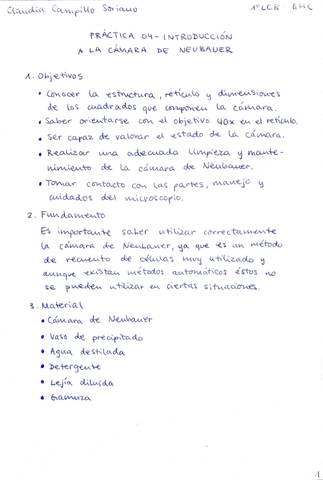 Claudia Campillo Soriano 1º LCB BHC
PRÁCTICA 04 - INTRODUCCIÓN
A LA CÁMARA DE NEUBAUER
1. Objetivos
• Conocer la estructura, retículo y dimensiones
de los cuadrados que componen la cámara.
• Saber orientarse con el objetivo 40x en el retículo.
• Ser capaz de valorar el estado de la cámara.
• Realizar una adecuada limpieza y mante-
nimiento de la cámara de Neubauer.
• Tomar contacto con las partes, manejo y
cuidados del microscopio.
2. Fundamento
Es importante saber utilizar correctamente
la cámara de Neubauer, ya que es un método
de recuento de células muy utilizado y
aunque existan métodos automáticos éstos no
se pueden utilizar en ciertas situaciones.
3. Material
• Cámara de Neubauer
• Vaso de precipitado
• Agua destilada
• Detergente
• Lejía diluida
• Gamuza
1